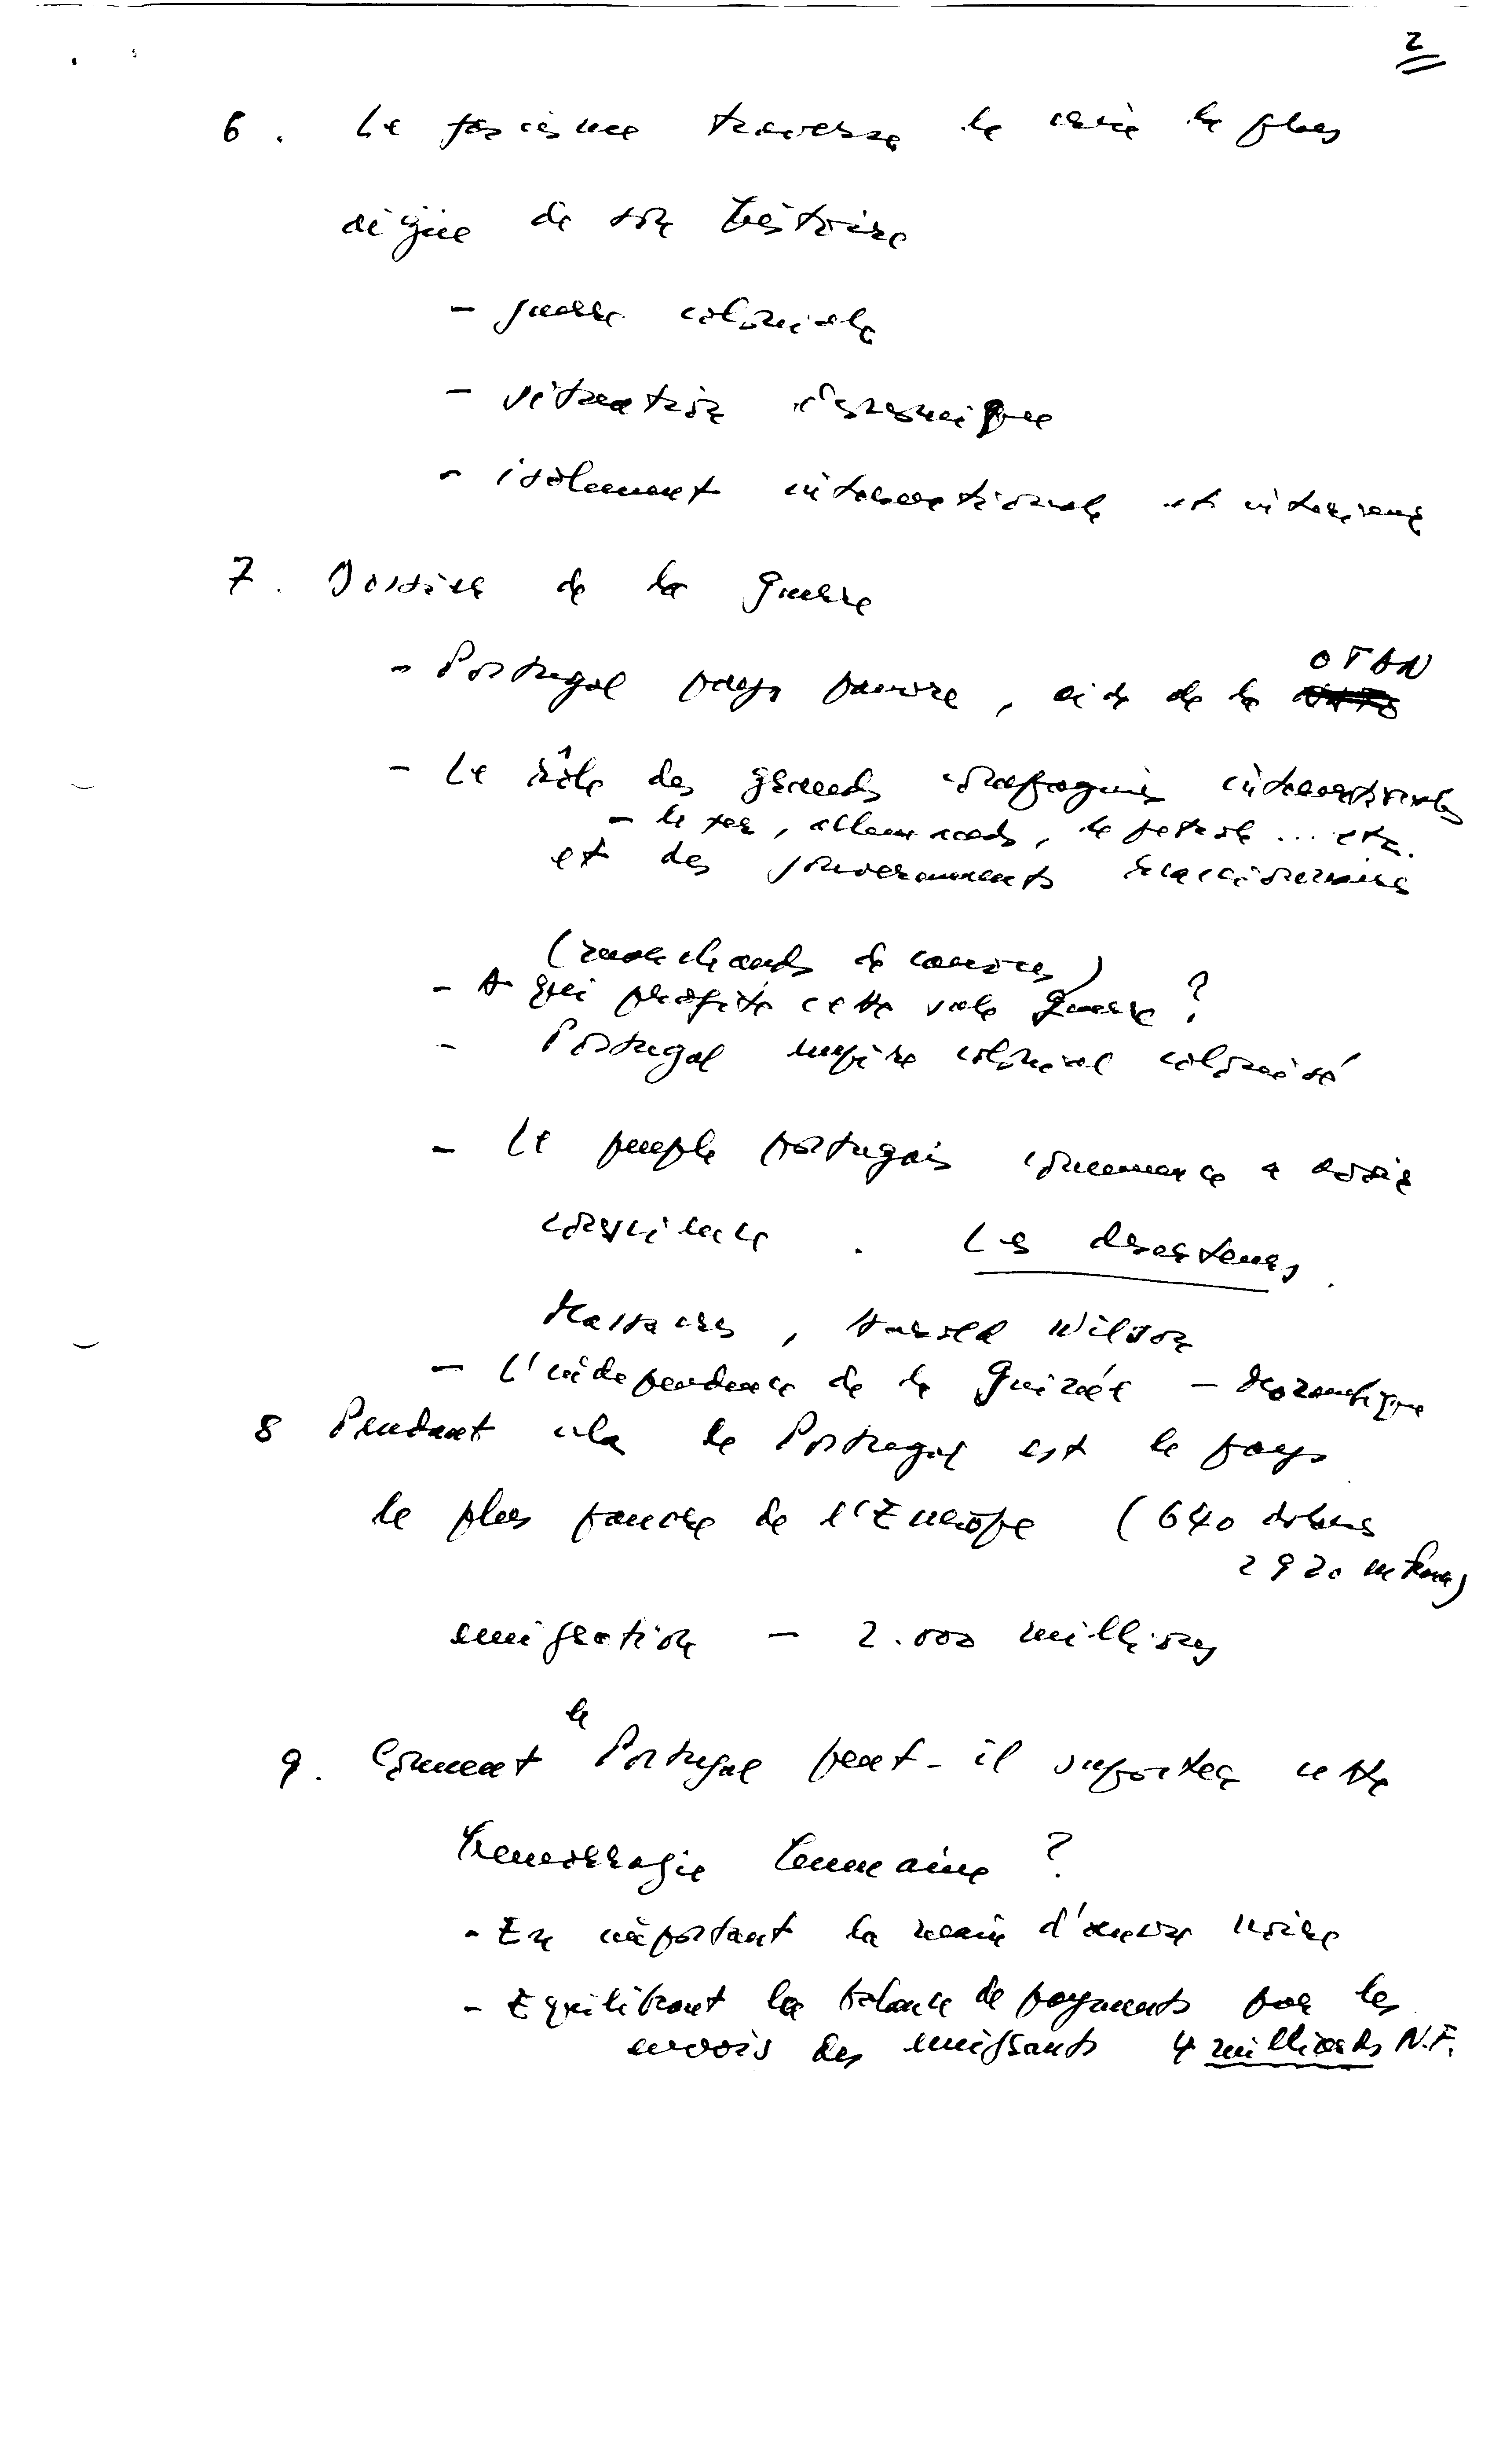 2
6. Le fascisme traverse la crise la plus
aigüe de son histoire
- guerre coloniale
- situation économique
- isolement internationale et interieure
7. Dossier de la guerre
- Portugal pays pauvre, aide de la OTAN
- Le rôle des grands compagnies internationales
- le fer, allemands, le petrole ... etc.
et des gouvernements reaccionaires
(marchands de canons)
- A qui profite cette sale guerre ?
- Portugal empire colonial colonisé
- Le peuple portugais commence a avoir
conscience. Les deserteurs.
Massacres, Harold Wilson
- L'independence de la Guinée - Mozambique
8 Pendant cela le Portugal est le pays
le plus pauvre de l'Europe (640 dolars
2920 )
emigration - 2.000 millions
9. Comment le Portugal peut-il suporter cette
hemorragie humaine ?
- En important la main d'oeuvre noire
- Equilibrant la balance de payments par les
envois des emigrants 4 milliards N.F.